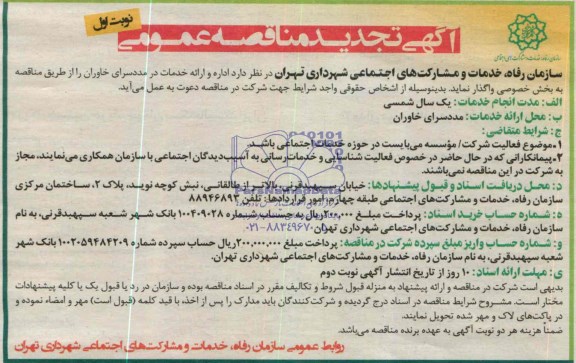 نوبت اول
آگهی تجدید مناقصه عمومی
سازمان رفاه، خدمات و مشارکت‌های اجتماعی شهرداری تهران در نظر دارد اداره و ارائه خدمات در مددسرای خاوران را از طریق مناقصه
به بخش خصوصی واگذار نماید. بدینوسیله از اشخاص حقوقی واجد شرایط جهت شرکت در مناقصه دعوت به عمل می‌آید.
الف: مدت انجام خدمات: یک سال شمسی
ب: محل ارائه خدمات: مددسرای خاوران
ج: شرایط متقاضی:
۱-موضوع فعالیت شرکت/ مؤسسه می‌بایست در حوزه خدمات اجتماعی باشد.
۲-پیمانکارانی که در حال حاضر در خصوص فعالیت شناسایی و خدمات رسانی به آسیب‌دیدگان اجتماعی با سازمان همکاری می‌نمایند، مجاز
به شرکت در این مناقصه نمی‌باشند.
د: محل دریافت اسناد و قبول پیشنهادها: خیابان سپهبدقرنی، بالاتر از طالقانی، نبش کوچه نوید، پلاک ۲، ساختمان مرکزی
سازمان رفاه، خدمات و مشارکت‌های اجتماعی طبقه چهارم، امور قراردادها: تلفن: ۸۸۹۴۶۸۹۳
ه: شماره حساب خرید اسناد: پرداخت مبلغ ۲۰۰,۰۰۰ریال به حساب شماره ۱۰۰۴۰۹۰۲۸ بانک شهر شعبه سپهبدقرنی، به نام
سازمان رفاه، خدمات و مشارکت‌های اجتماعی شهرداری تهران.
۰۲۱-۸۸۳۴۹۶۷۰
و: شماره حساب واریز مبلغ سپرده شرکت در مناقصه: پرداخت مبلغ ۲۰۰,۰۰۰,۰۰۰ریال حساب سپرده شماره ۱۰۰۲۰۵۹۴۸۴۲۰۹ بانک شهر
شعبه سپهبدقرنی، به نام سازمان رفاه، خدمات و مشارکت‌های اجتماعی شهرداری تهران.
ی: مهلت ارائه اسناد: ۱۰ روز از تاریخ انتشار آگهی نوبت دوم
بدیهی است شرکت در مناقصه و ارائه پیشنهاد به منزله قبول شروط و تکالیف مقرر در اسناد مناقصه بوده و سازمان در رد یا قبول یک یا کلیه پیشنهادات
مختار است. مشروح شرایط مناقصه در اسناد درج گردیده و شرکت‌کنندگان باید مدارک را پس از اخذ، با قید کلمه (قبول است) مهر و امضاء نموده و
در پاکت‌های لاک و مهر شده تحویل نمایند.
ضمناً هزینه هر دو نوبت آگهی به عهده برنده مناقصه می‌باشد.
روابط عمومی سازمان رفاه، خدمات و مشارکت‌های اجتماعی شهرداری تهران